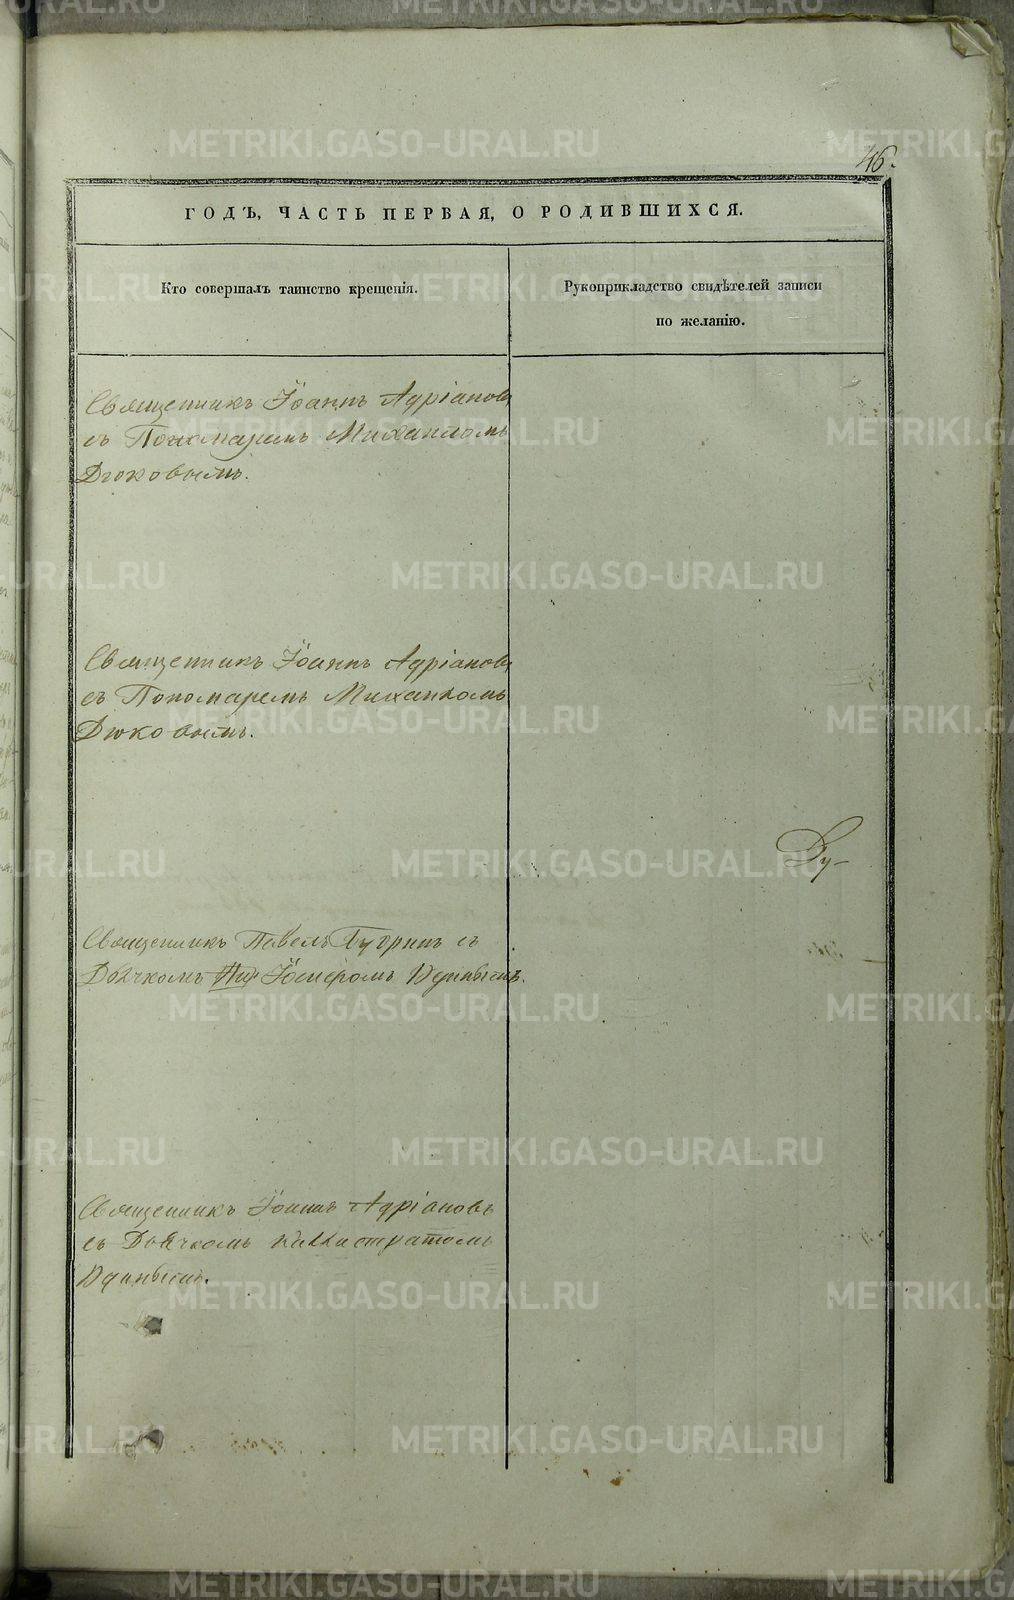 46.
ГОДЪ, ЧАСТЬ ПЕРВАЯ, О РОДИВШИХСЯ.
Кто совершалъ таинство крещенія.
Рукоприкладство свидѣтелей записи
по желанію.
Священникъ Іоаннъ Адріановъ
съ Пономаремъ Михаиломъ
Дюковымъ.
Священникъ Іоаннъ Адріановъ
съ Пономаремъ Михаиломъ
Дюковымъ.
Ду-
Священникъ Павелъ съ
Дьячкомъ
Священникъ Іоаннъ Адріановъ
съ Дьячкомъ Каллистратомъ
METRIKI.GASO-URAL.RU